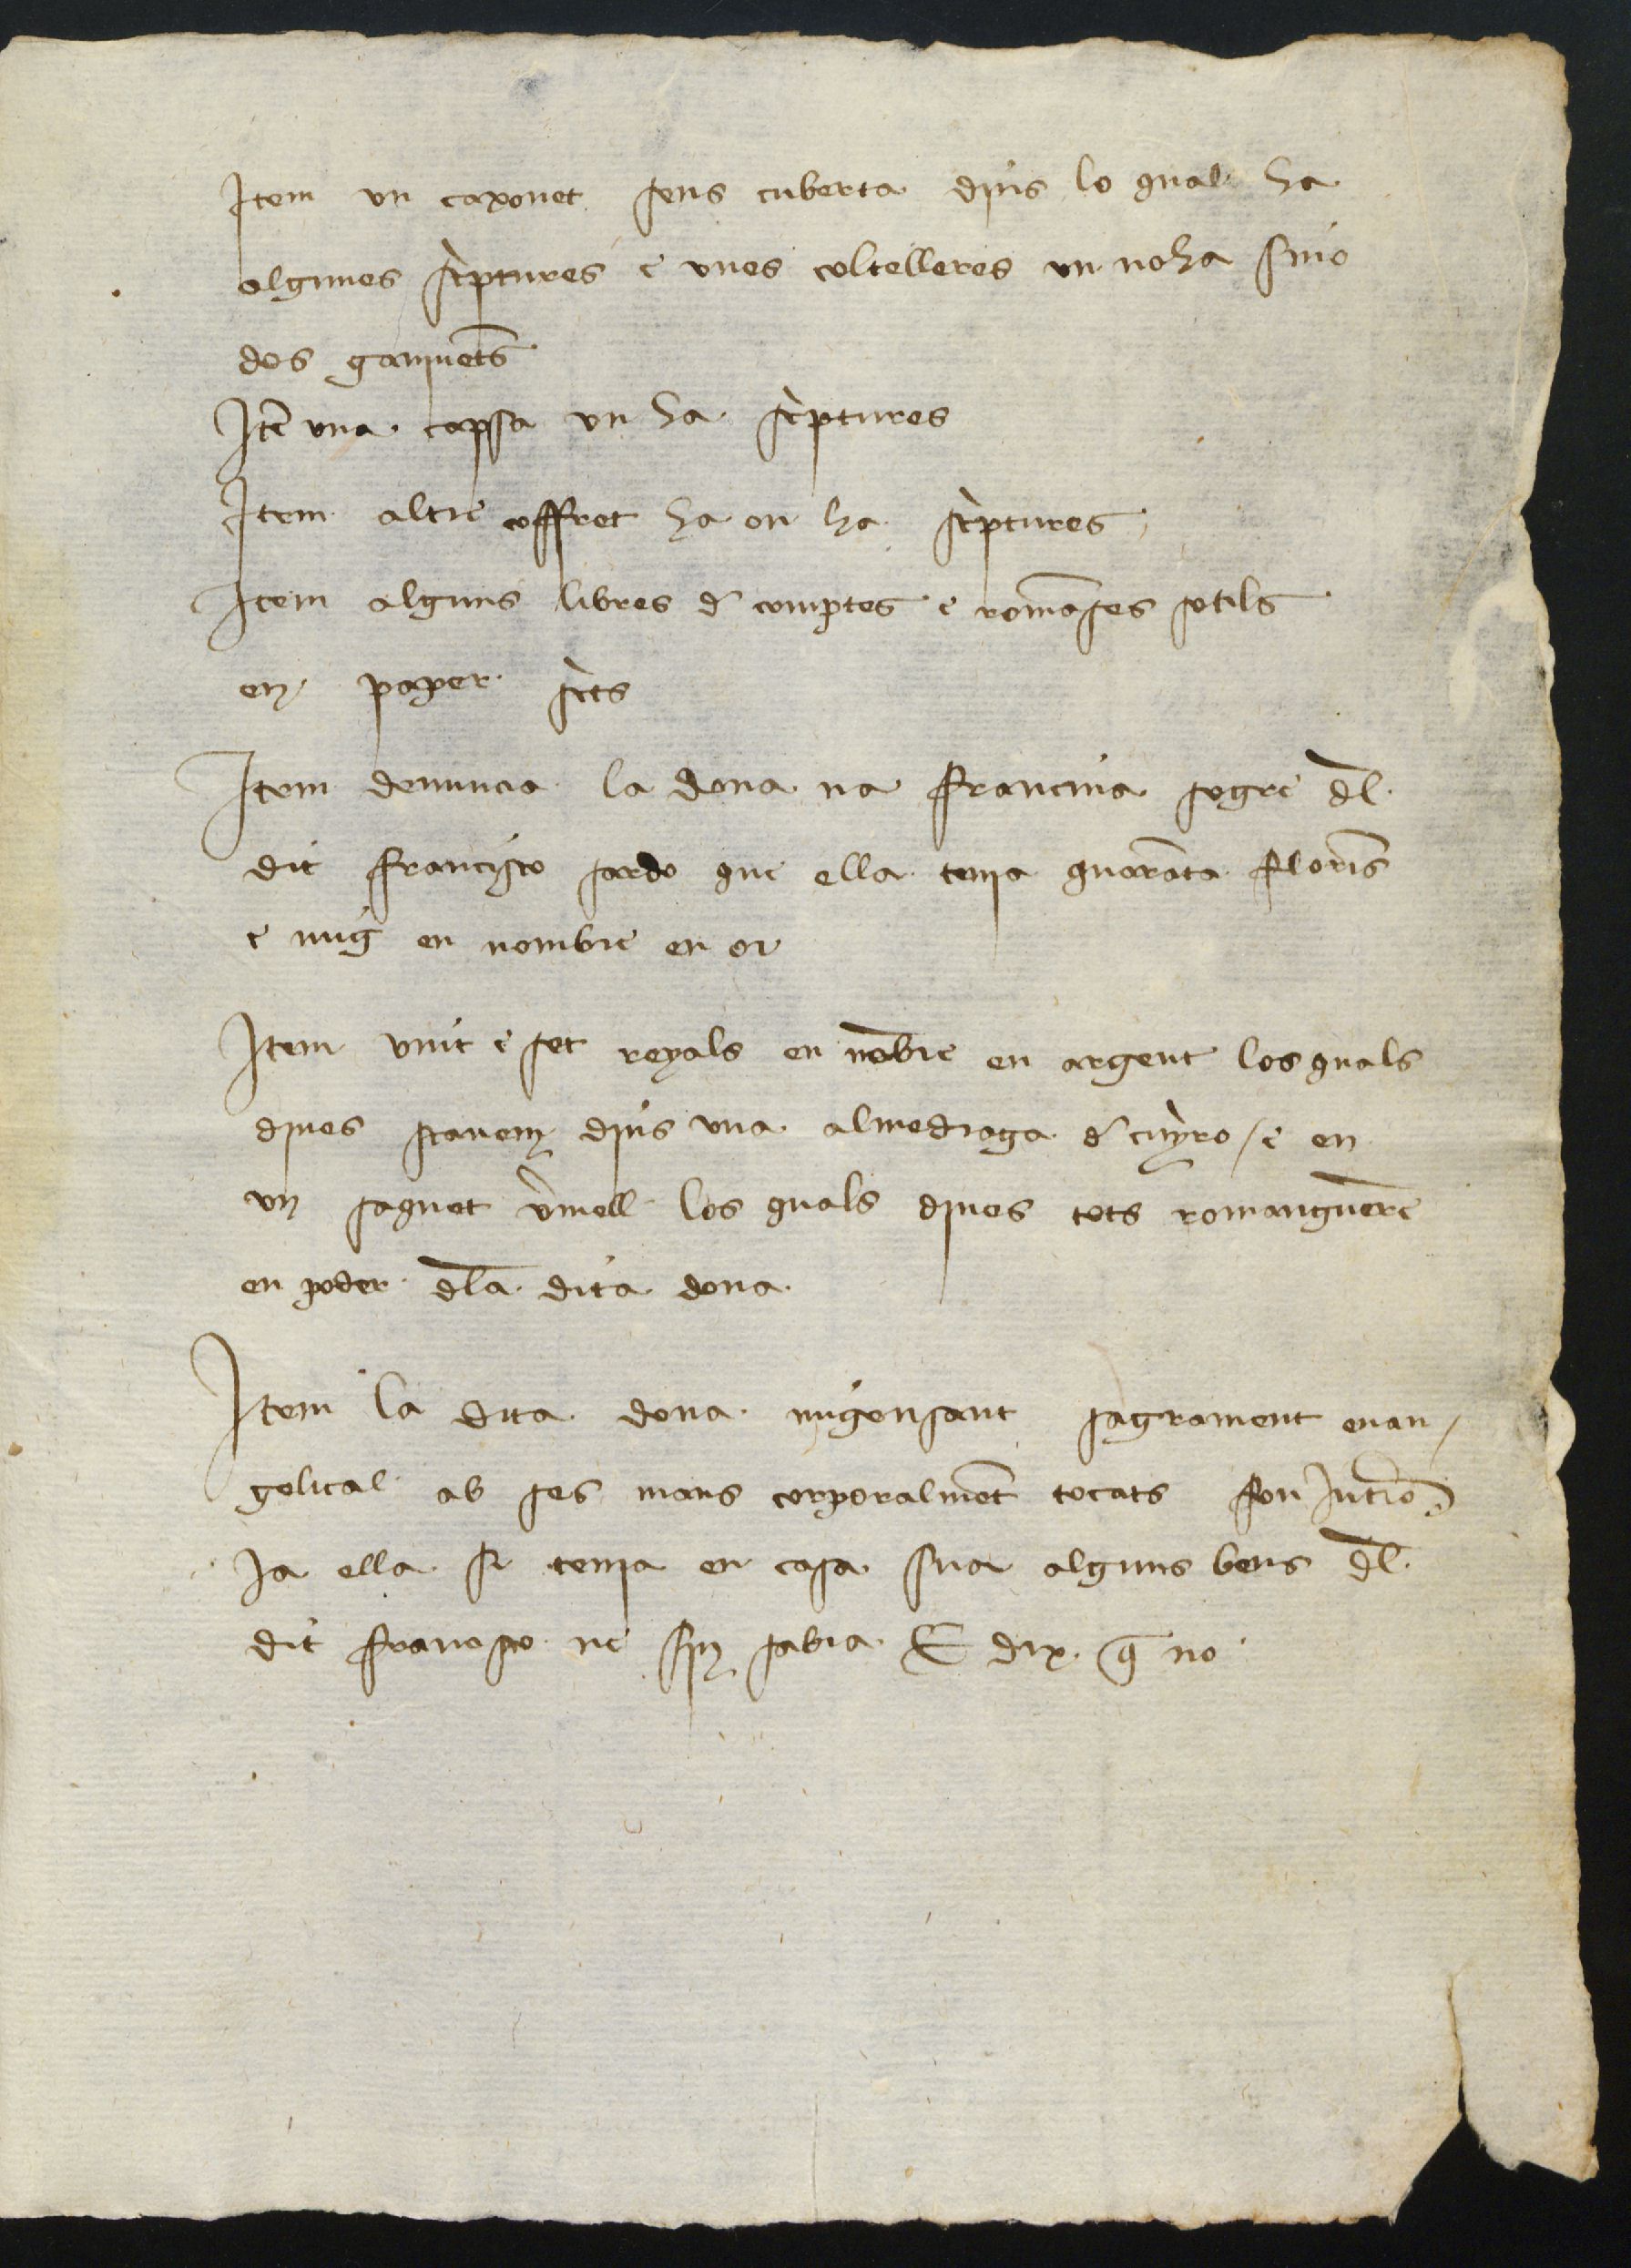 Item un caxonet sens cuberta dins lo qual ha
algunes scriptures e unes coltelleres un noha sino
dos ganivets
Item una capsa un ha scriptures
Item altre coffret ha on ha scriptures
Item alguns libres de comptes e romanses sotils
en paper scrits
Item denuncia la dona na ffrancina sogre del
dit ffrancisco sardo que ella tenia quoranta fflorins
e mig en nombre en or
Item vint e set reyals en nombre en argent los quals
dines staven dins una almedraga de cuyro / e en
un saquet vermell los quals dines tots romangueren
en poder dela dita dona
Item la dita dona migensant sagrament evan/
gelical ab ses mans corporalment tocats fon
ja ella si tenia en casa sua alguns bens del
dit ffrancisco ne sin sabia E dix que no